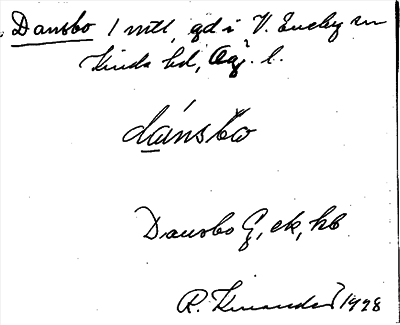 Dansbo 1 mtl, gd i V. Eneby sn
Kinda hd, Ög. l.
dánsbo
Dansbo G, ek, hb
R. Kinander 1928